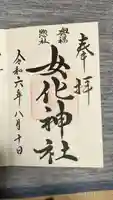 奉拝
女化神社
令和六年八月十日